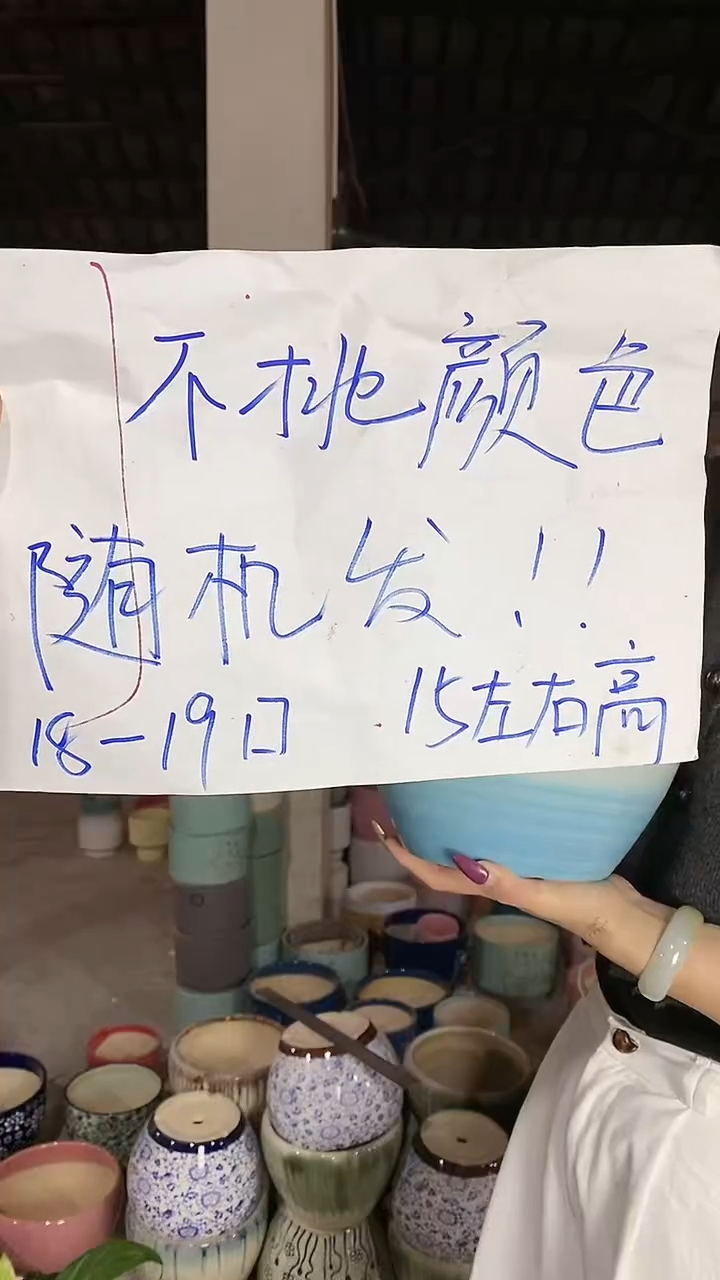 不挑颜色
随机发!!
18-19口 15左右高